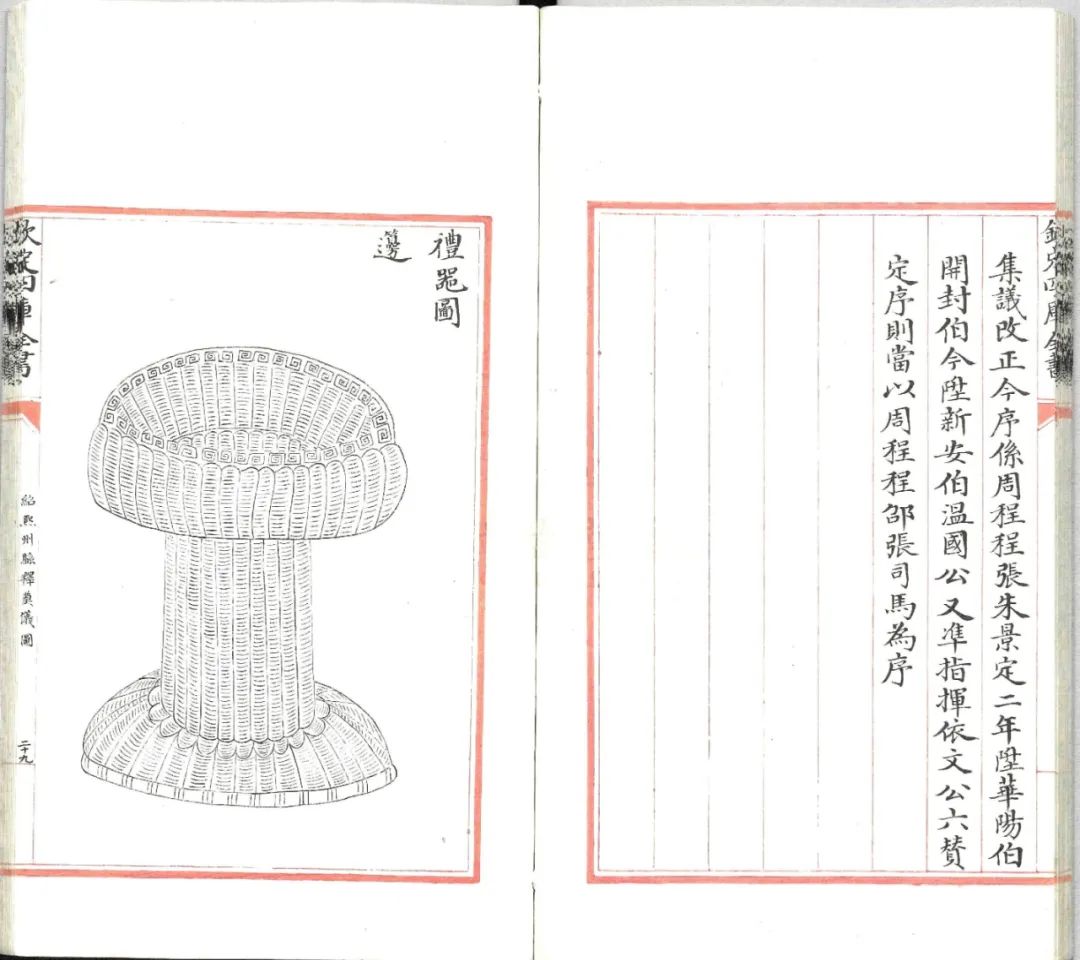 欽定四庫全書
集議改正今序係周程程張朱景定二年陞華陽伯
開封伯今陞新安伯溫國公又準指揮依文公六贊
定序則當以周程程邵張司馬為序
禮器圖
籩
欽定四庫全書
紹熙州縣釋奠儀圖
二十九